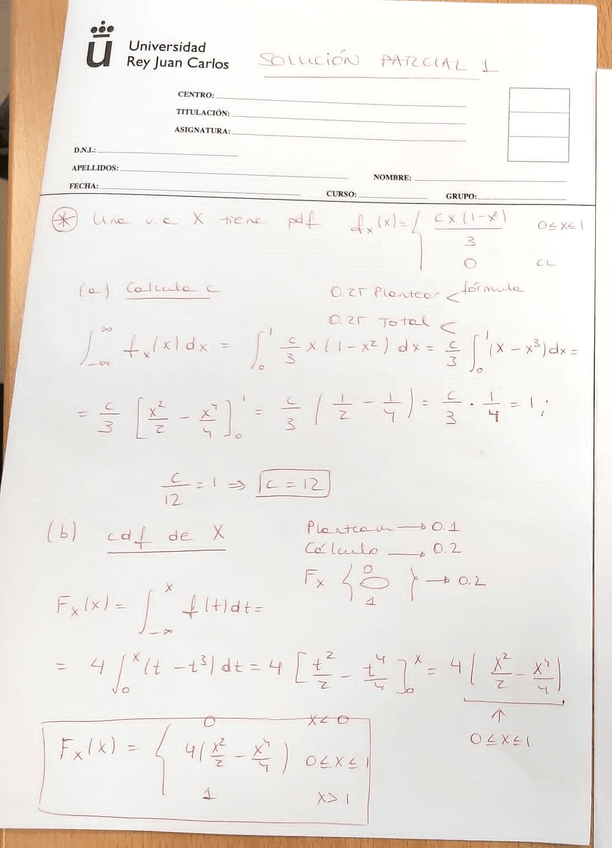 Universidad
Rey Juan Carlos
SOLUCIÓN PARCIAL 1
CENTRO:
TITULACIÓN:
ASIGNATURA:
D.N.I.:
APELLIDOS:
NOMBRE:
FECHA:
CURSO:
GRUPO:
* Una v.a X tiene pdf fx(x) = { cx(1-x²)/3 0≤x≤1
0 cc
(a) Calcula c
0.25 Plantear < fórmula
0.25 Total <
∫_{-∞}^{∞} fx(x)dx = ∫₀¹ c/3 x(1-x²) dx = c/3 ∫₀¹ (x-x³)dx =
= c/3 [x²/2 - x⁴/4]₀¹ = c/3 (1/2 - 1/4) = c/3 · 1/4 = 1;
c/12 = 1 ⇒ c = 12
(b) cdf de X
Plantear → 0.1
Cálculo → 0.2
Fx { 0 1 } → 0.2
Fx(x) = ∫_{-∞}^{x} f(t)dt =
= 4 ∫₀ˣ (t - t³) dt = 4 [t²/2 - t⁴/4]₀ˣ = 4 (x²/2 - x⁴/4)
↑
0≤x≤1
Fx(x) = { 0 x<0
4(x²/2 - x⁴/4) 0≤x≤1
1 x>1